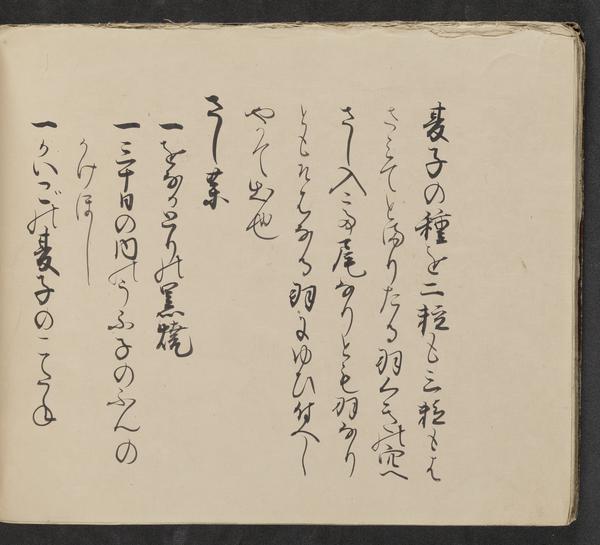 麦子の種を二粒も三粒もは
さミてとまりたる羽くきの穴へ
さし入二而尾なりとも羽なり
ともそはなる羽にゆひ付へし
やかて出也
さし薬
一をなかとりの黒焼
一三十日の内のうふ子のふんの
かけほし
一かいこの麦子のこ